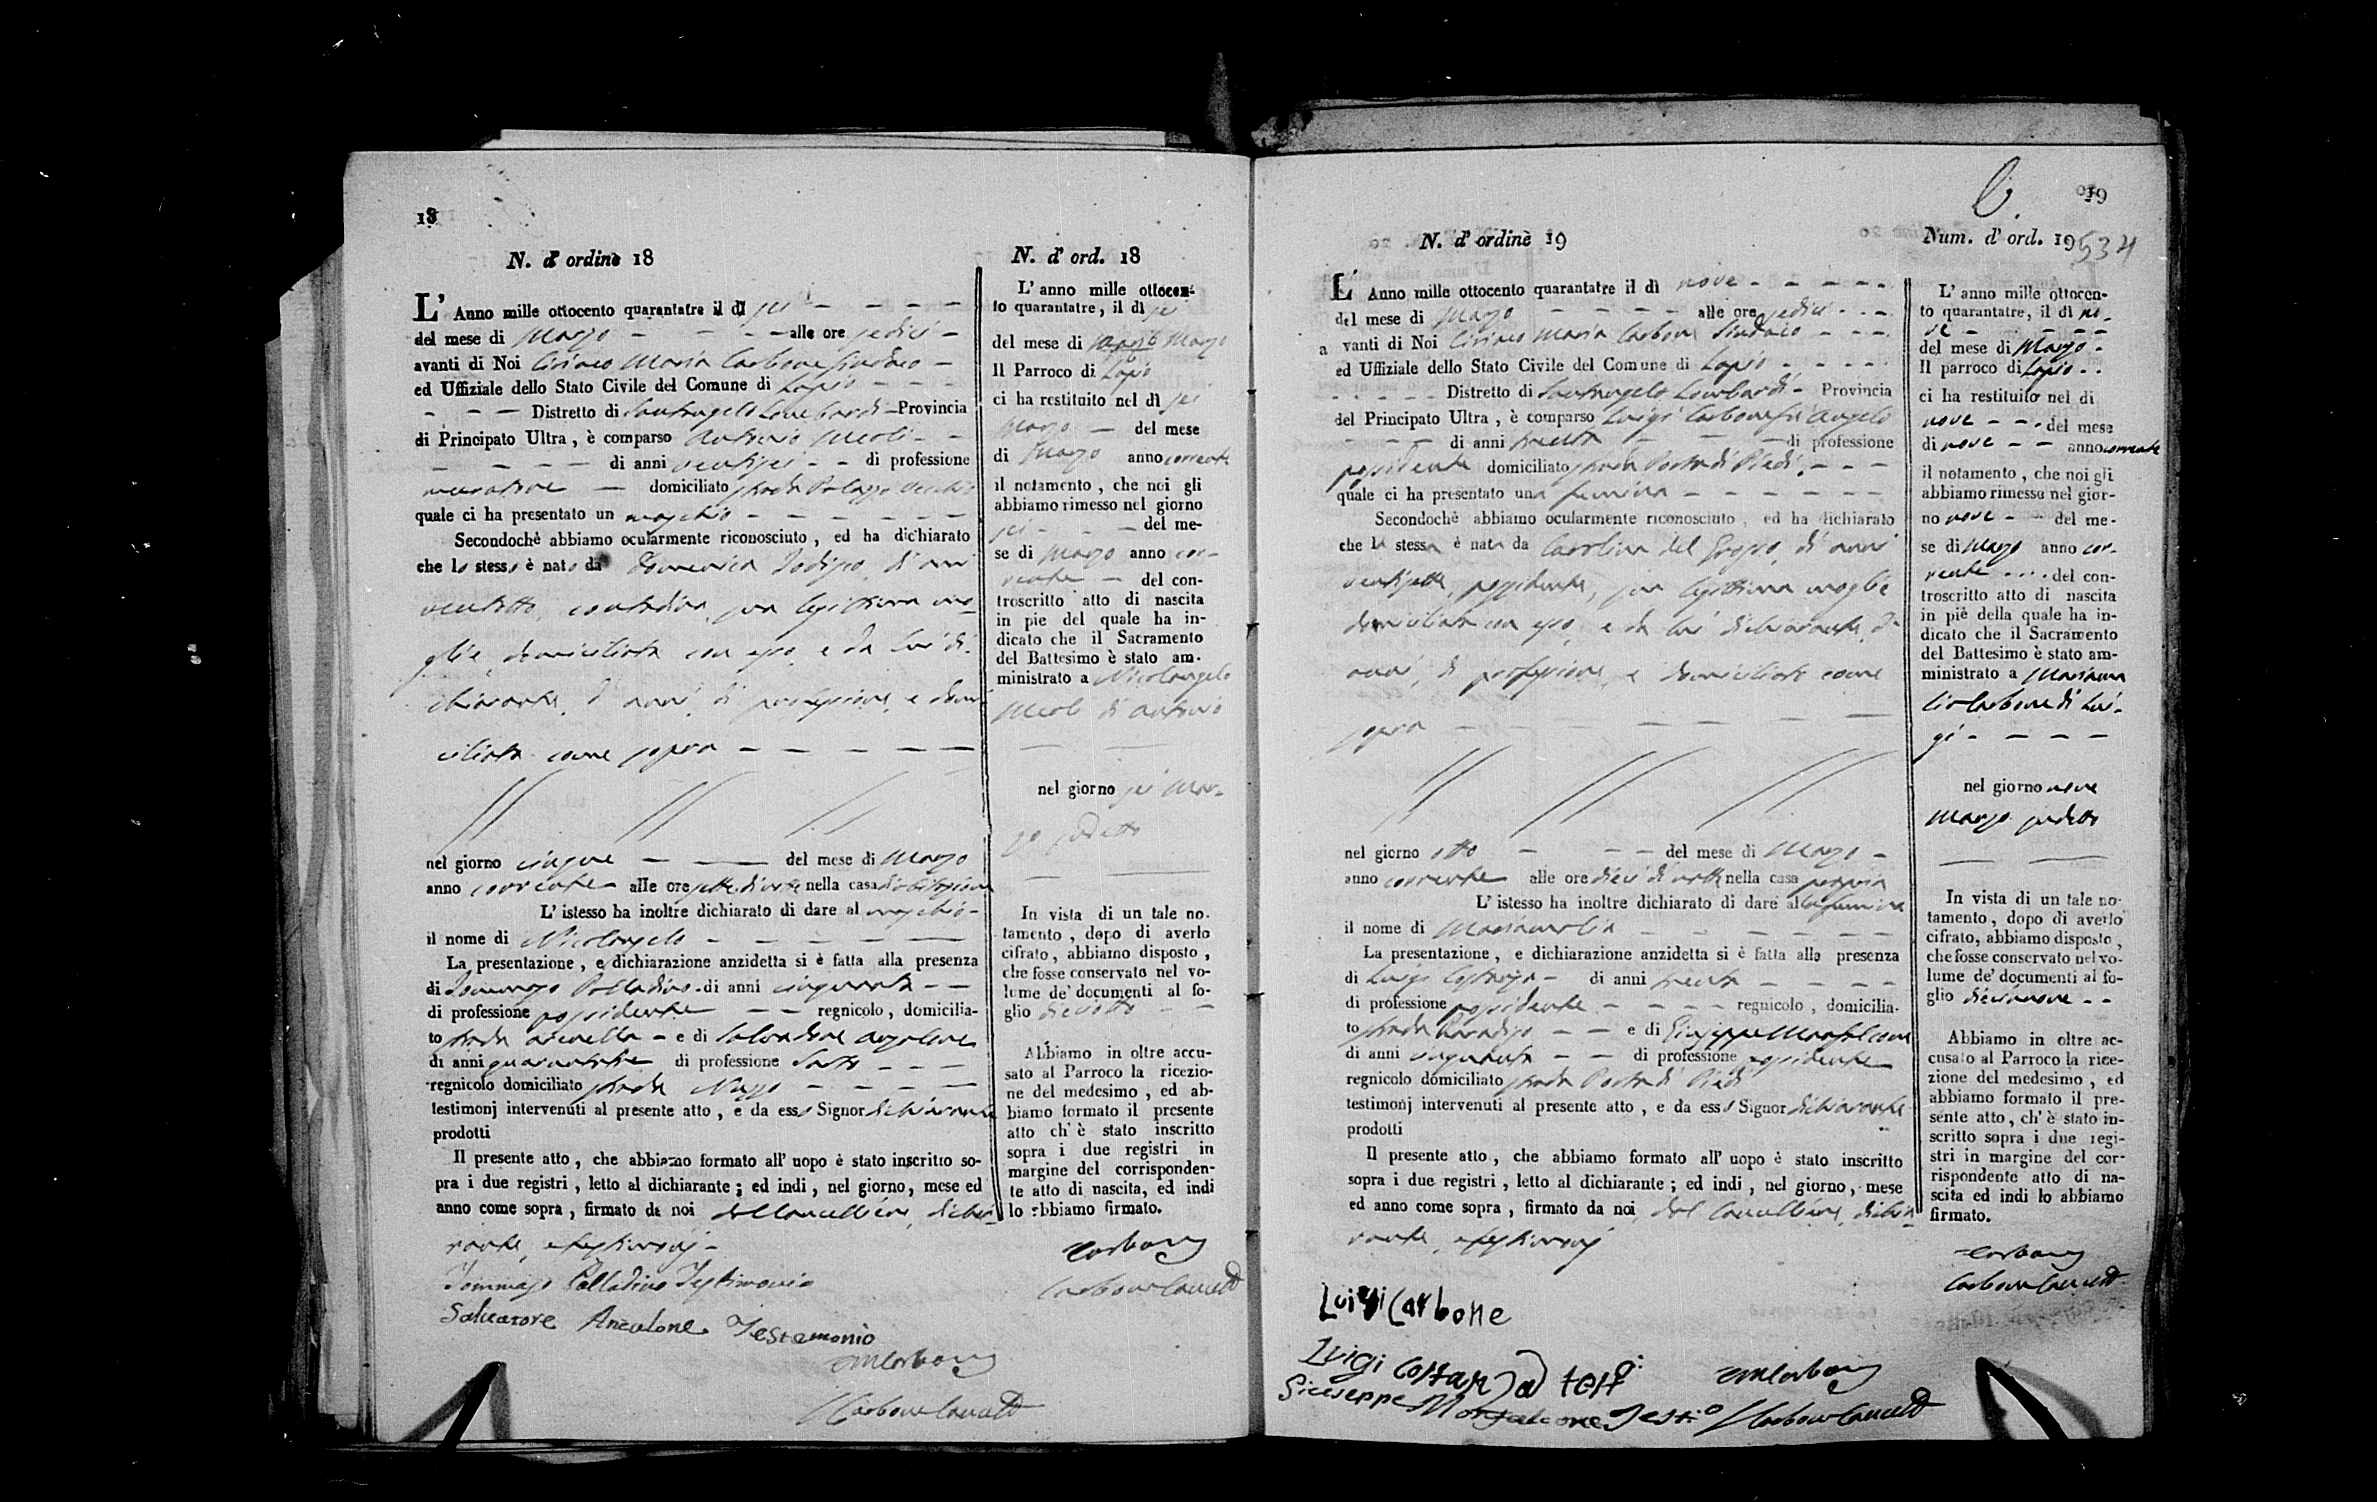 18
N. d' ordine 18
L' Anno mille ottocento quarantatre il dì sei
del mese di Marzo alle ore sedici
avanti di Noi Ciriaco Maria Carbone Sindaco
ed Uffiziale dello Stato Civile del Comune di Lapio
Distretto di Santangelo Lombardi Provincia
di Principato Ultra, è comparso Antonio Meoli
di anni ventisei di professione
domiciliato strada Palazzo Vecchio
quale ci ha presentato un maschio
Secondochè abbiamo ocularmente riconosciuto, ed ha dichiarato
che lo stesso è nato da Domenica Iodipo, di anni
ventotto, contadina, sua legittima mo-
glie, domiciliata con esso, e da lui di-
chiarante, d'anni, di professione, e domi-
ciliato come sopra
nel giorno cinque del mese di Marzo
anno corrente alle ore sette di notte nella casa d'abitazione
L' istesso ha inoltre dichiarato di dare al maschio
il nome di Nicolangelo
La presentazione, e dichiarazione anzidetta si è fatta alla presenza
di Tommaso Palladino di anni cinquanta
di professione possidente regnicolo, domicilia-
to strada e di Salvatore Anzalone
di anni quarantatre di professione Sarto
regnicolo domiciliato strada
testimonj intervenuti al presente atto, e da esso Signor dichiarante
prodotti
Il presente atto, che abbiamo formato all' uopo è stato inscritto so-
pra i due registri, letto al dichiarante; ed indi, nel giorno, mese ed
anno come sopra, firmato da noi dal Cancelliere, dichia-
rante, e testimonj
Tommaso Palladino Testimonio
Salvatore Anzalone Testemonio
CMCarbone
Carbone Cancell
N. d' ord. 18
L' anno mille ottocen-
to quarantatre, il dì sei
del mese di Marzo
Il Parroco di Lapio
ci ha restituito nel dì sei
Marzo del mese
di Marzo anno corrente
il notamento, che noi gli
abbiamo rimesso nel giorno
sei del me-
se di Marzo anno cor-
rente del con-
troscritto atto di nascita
in pie del quale ha in-
dicato che il Sacramento
del Battesimo è stato am-
ministrato a Nicolangelo
Meoli di Antonio
nel giorno sei Mar-
zo sudetto
In vista di un tale no-
tamento, dopo di averlo
cifrato, abbiamo disposto,
che fosse conservato nel vo-
lume de' documenti al fo-
glio diciotto
Abbiamo in oltre accu-
sato al Parroco la ricezio-
ne del medesimo, ed ab-
biamo formato il presente
atto ch' è stato inscritto
sopra i due registri in
margine del corrisponden-
te atto di nascita, ed indi
lo abbiamo firmato.
Carbone
Carbone Cancell
19
N. d' ordine 19
L' Anno mille ottocento quarantatre il dì nove
del mese di Marzo alle ore sedici
avanti di Noi Ciriaco Maria Carbone Sindaco
ed Uffiziale dello Stato Civile del Comune di Lapio
Distretto di Santangelo Lombardi Provincia
del Principato Ultra, è comparso Luigi Carbone fu Angelo
di anni trenta di professione
possidente domiciliato strada Porta di Piedi
quale ci ha presentato una femina
Secondochè abbiamo ocularmente riconosciuto, ed ha dichiarato
che la stessa è nata da Carolina del Grosso, di anni
ventisette, possidente, sua legittima moglie
domiciliata con esso, e da lui dichiarante, d'
anni, di professione, e domiciliato come
sopra
nel giorno otto del mese di Marzo
anno corrente alle ore dieci di notte nella casa propria
L' istesso ha inoltre dichiarato di dare alla femina
il nome di
La presentazione, e dichiarazione anzidetta si è fatta alla presenza
di Luigi Costanza di anni trenta
di professione possidente regnicolo, domicilia-
to strada Paradiso e di Giuseppe Monfalcone
di anni cinquanta di professione possidente
regnicolo domiciliato strada Porta di Piedi
testimonj intervenuti al presente atto, e da esso Signor dichiarante
prodotti
Il presente atto, che abbiamo formato all' uopo è stato inscritto
sopra i due registri, letto al dichiarante; ed indi, nel giorno, mese
ed anno come sopra, firmato da noi, dal Cancelliere, dichia-
rante, e testimonj
Luigi Carbone
Luigi Costanza test
Giuseppe Monfalcone Testio
CMCarbone
Carbone Cancell
Num. d' ord. 19
534
L' anno mille ottocen-
to quarantatre, il dì no-
ve
del mese di Marzo
Il parroco di Lapio
ci ha restituito nel di
nove del mese
di nove anno corrente
il notamento, che noi gli
abbiamo rimesso nel gior-
no nove del me-
se di Marzo anno cor-
rente del con-
troscritto atto di nascita
in piè della quale ha in-
dicato che il Sacramento
del Battesimo è stato am-
ministrato a
Carbone di Lui-
gi
nel giorno nove
Marzo sudetto
In vista di un tale no-
tamento, dopo di averlo
cifrato, abbiamo disposto,
che fosse conservato nel vo-
lume de' documenti al fo-
glio diecinove
Abbiamo in oltre ac-
cusato al Parroco la rice-
zione del medesimo, ed
abbiamo formato il pre-
sente atto, ch' è stato in-
scritto sopra i due regi-
stri in margine del cor-
rispondente atto di na-
scita ed indi lo abbiamo
firmato.
Carbone
Carbone Cancell